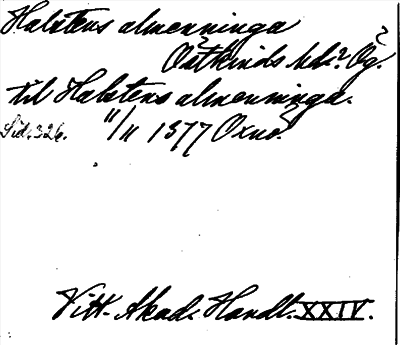 Halstens almenninga
Östkinds hd? Ög.?
til Halstens almenninga.
Sid. 326. 11/11 1377 Oxnö?
Vitt. Akad. Handl. XXIV.